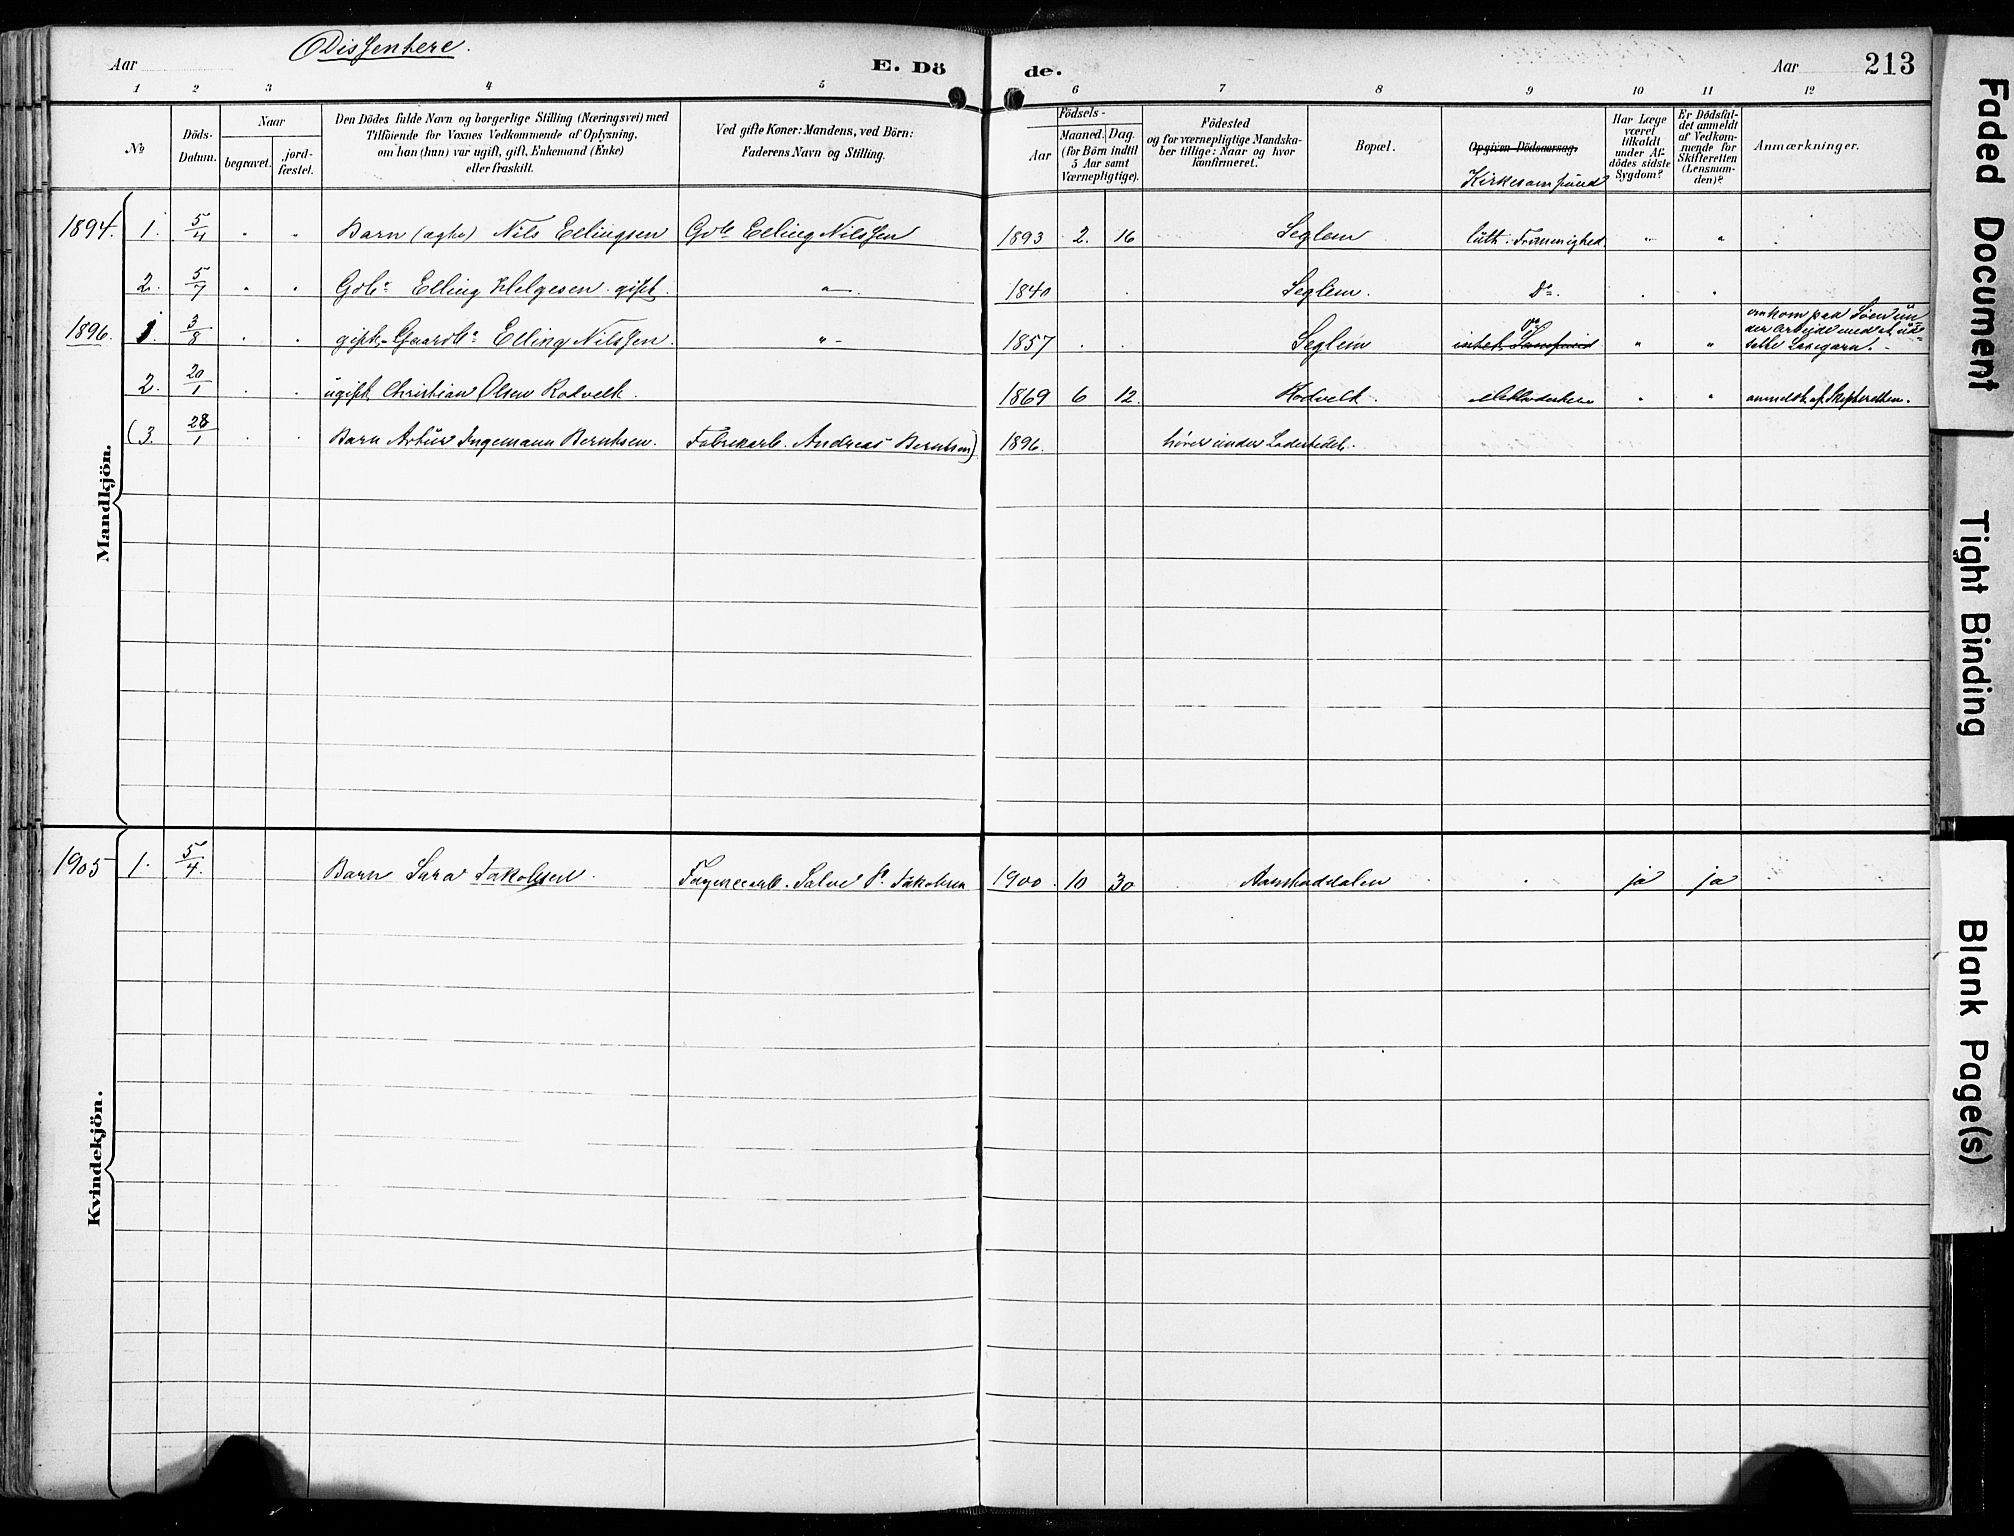 Aar
Dissentere.
E. Dö
de.
Aar
213
1 2 3 4 5 6 7 8 9 10 11 12
No
Döds-
Datum.
Naar
begravet.
jord-
fæstet.
Den Dödes fulde Navn og borgerlige Stilling (Næringsvei) med
Tilföiende for Voxnes Vedkommende af Oplysning,
om han (hun) var ugift, gift, Enkemand (Enke)
eller fraskilt.
Ved gifte Koner: Mandens, ved Börn:
Faderens Navn og Stilling.
Födsels-
Aar
Maaned. Dag.
(for Börn indtil
5 Aar samt
Værnepligtige).
Födested
og for værnepligtige Mandska-
ber tillige: Naar og hvor
konfirmeret.
Bopæl.
Opgiven Dödsaarsag.
Kirkesamfund
Har Læge
været
tilkaldt
under Af-
dödes sidste
Sygdom?
Er Dödsfal-
det anmeldt
af Vedkom-
mende for
Skifteretten
(Lensman-
den)?
Anmærkninger.
1894. 1. 5/4 " " Barn (ægte) Nils Ellingsen Gdb. Elling Nilssen 1893 2. 16 Seglem luth. Frimenighed " "
2. 5/7 " " Gdbr Elling Helgesen gift. " 1840 Seglem. do.
1896. 1. 3/8 gift, Gaardbr Elling Nilssen. " 1857 Seglem do. intet Samfund " " omkom paa Söen un-
der Arbeide med at ud-
sette Laxegarn.
2. 20/1 ugift Christian Olsen Rodvelt. 1869 6 12. Rodvelt. " " anmeldt af Skifteretten.
(3. 28/1 Barn Artur Ingemann Berntsen. Fabrikarb. Andreas Berntsen) 1896. hörer under Ladestedet.
Mandkjön.
1905 1. 5/4. Barn Sara Jakobsen. Fayencearb. Salve P. Jakobsen 1900 10 30 ja ja
Kvindekjön.
Faded Document
Tight Binding
Blank Page(s)